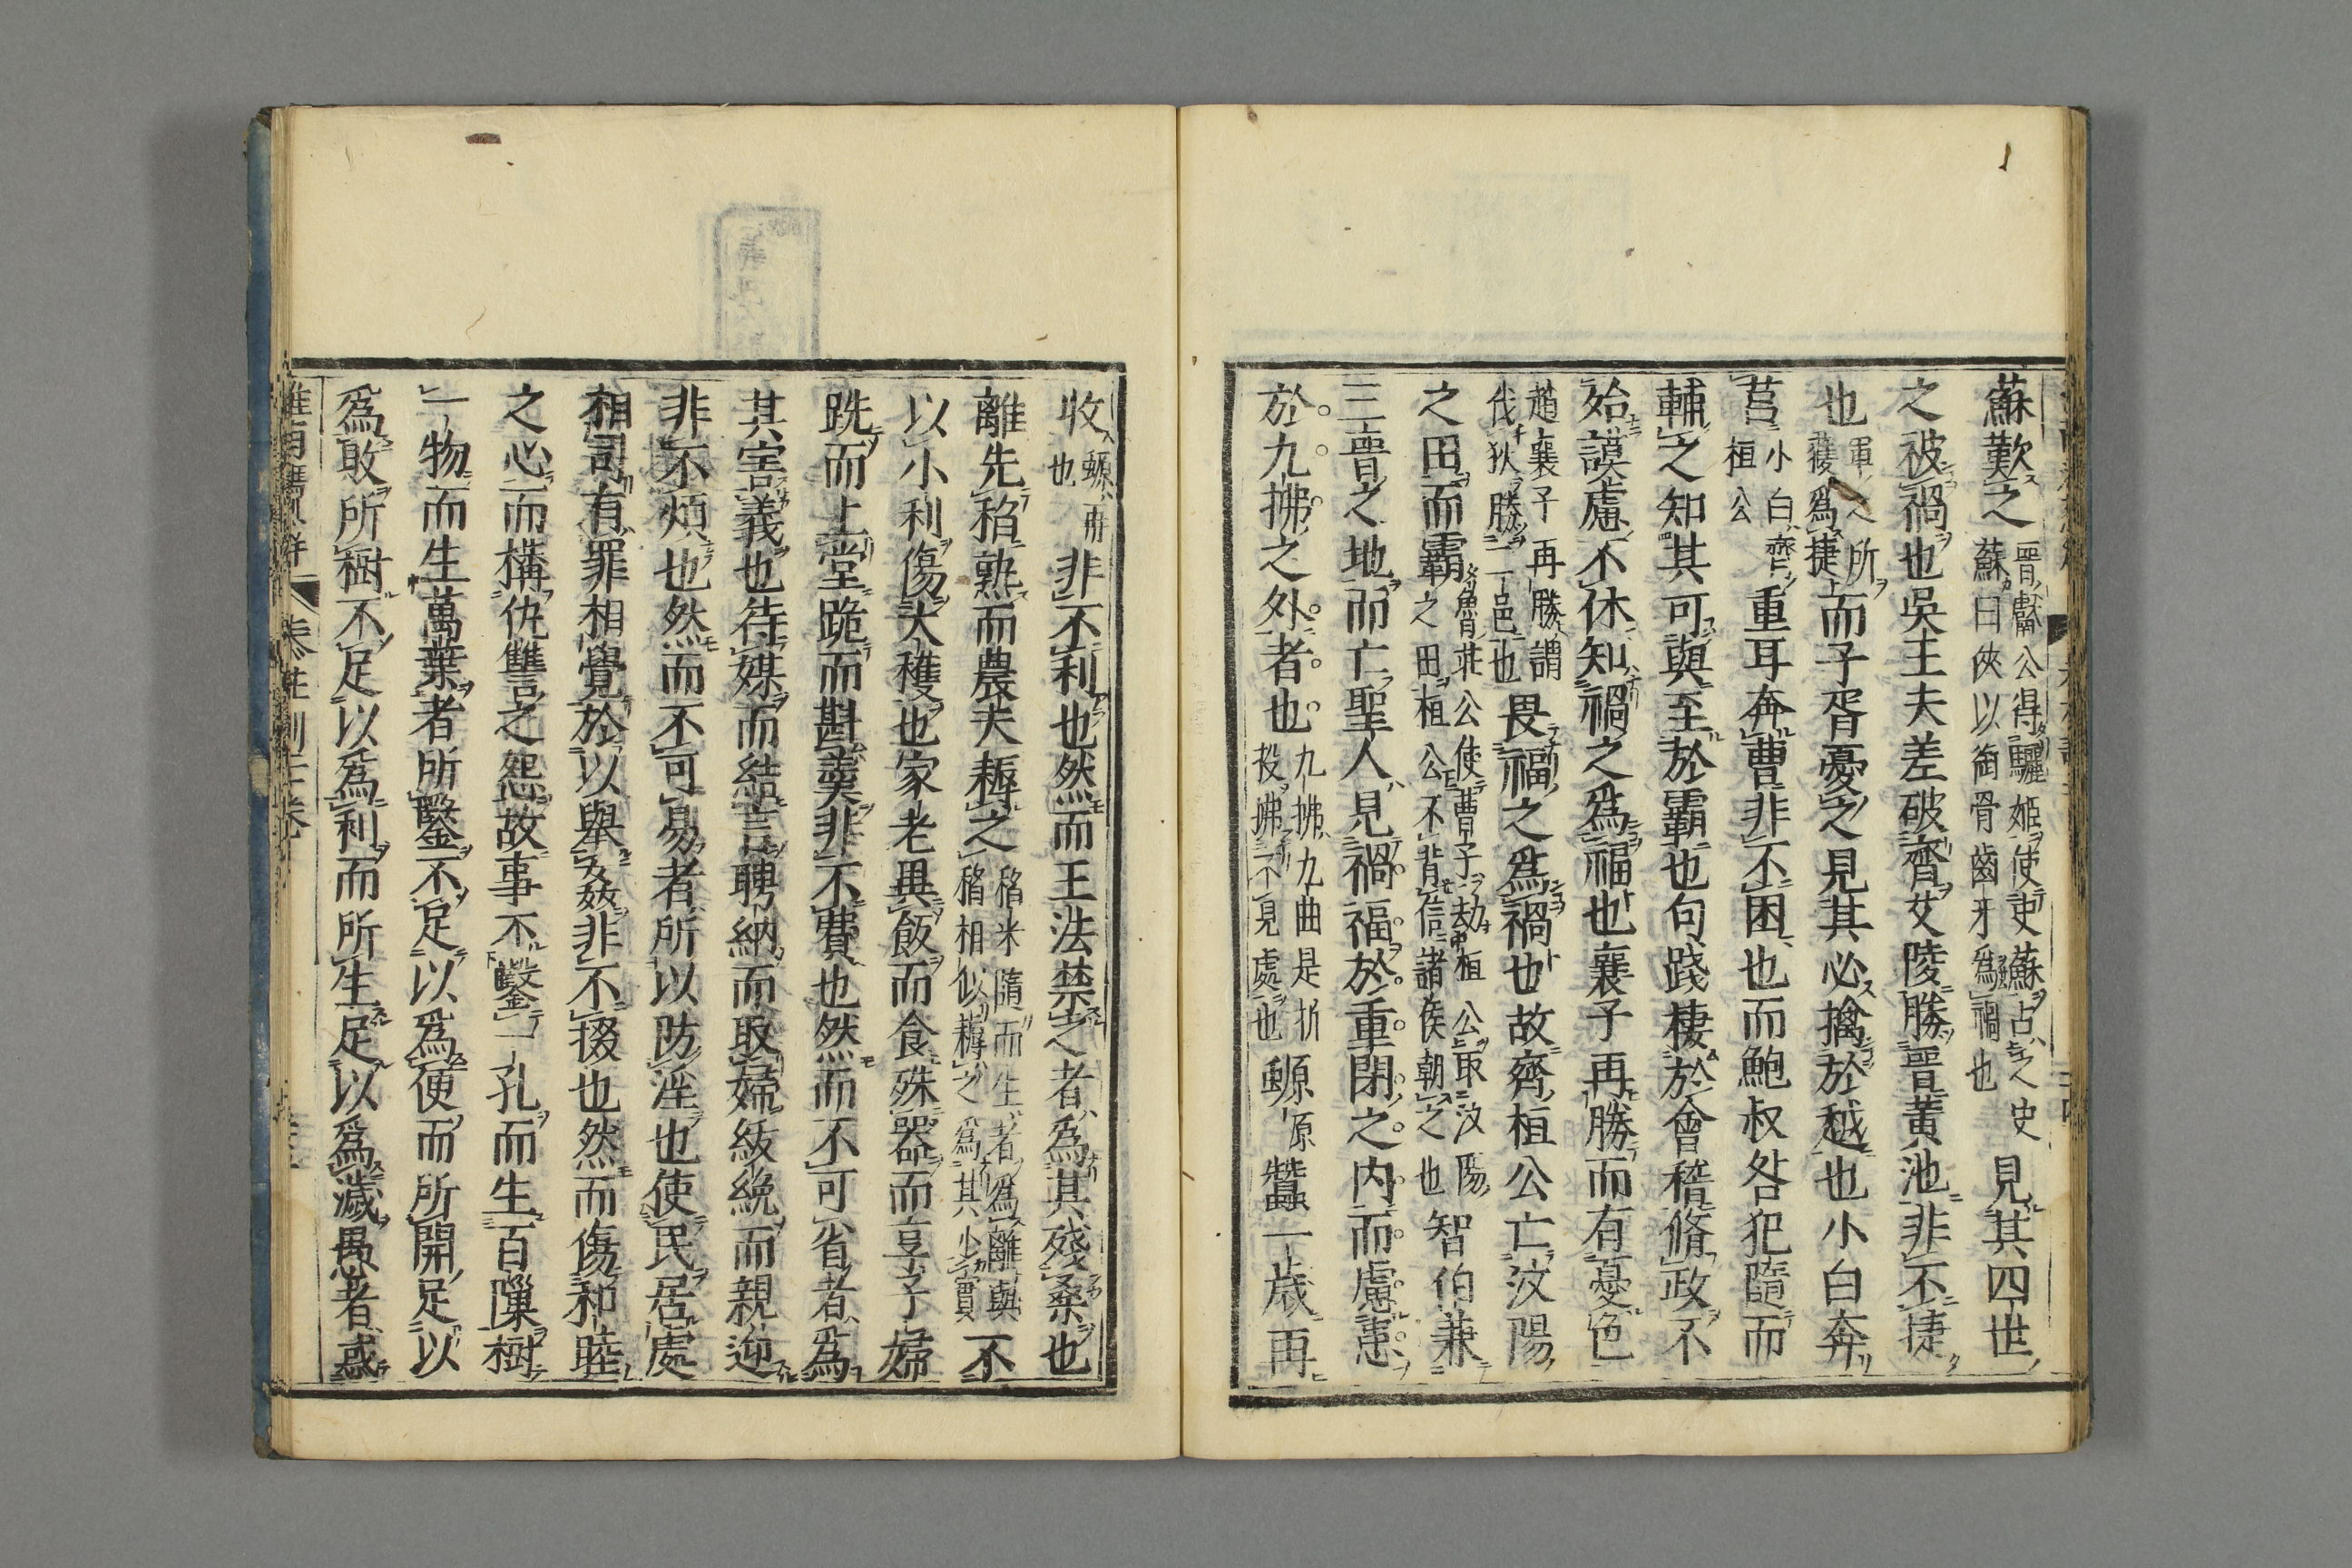 蘇歎之晋獻公得驪姬使史蘇占之史蘇曰俠以銜骨齒牙爲禍也見其四世
之被禍也吳王夫差破齊艾陵勝晋黃池非不捷
也軍之所獲爲捷而子胥憂之見其必擒於越也小白奔
莒小白齊桓公重耳奔曹非不困也而鮑叔咎犯隨而
輔之知其可與至於霸也句踐棲於會稽脩政不
殆謨慮不休知禍之爲福也襄子再勝而有憂色
趙襄子再勝謂伐狄勝二邑也畏福之爲禍也故齊桓公亡汶陽
之田而霸魯莊公使曹子劫桓公取汶陽之田桓公不背信諸侯朝之也智伯兼
三晋之地而亡聖人見禍福於重閉之内而慮患
於九拂之外者也九拂九曲是折投拂不見處也螈原蠶一歲再
收螈再也非不利也然而王法禁之者爲其殘桑也
離先稻熟而農夫耨之稻米隨而生者爲離與稻相似耨之爲其少實不
以小利傷大穫也家老異飯而食殊器而享子婦
跣而上堂跪而斟羹非不費也然而不可省者爲
其害義也待媒而結言聘納而取婦紱絻而親迎
非不煩也然而不可易者所以防淫也使民居處
相司有罪相覺於以舉姦非不掇也然而傷和睦
之心而構仇讐之怨故事不鑿一孔而生百隟樹
一物而生萬葉者所鑿不足以爲便而所開足以
爲敗所樹不足以爲利而所生足以爲濊愚者惑